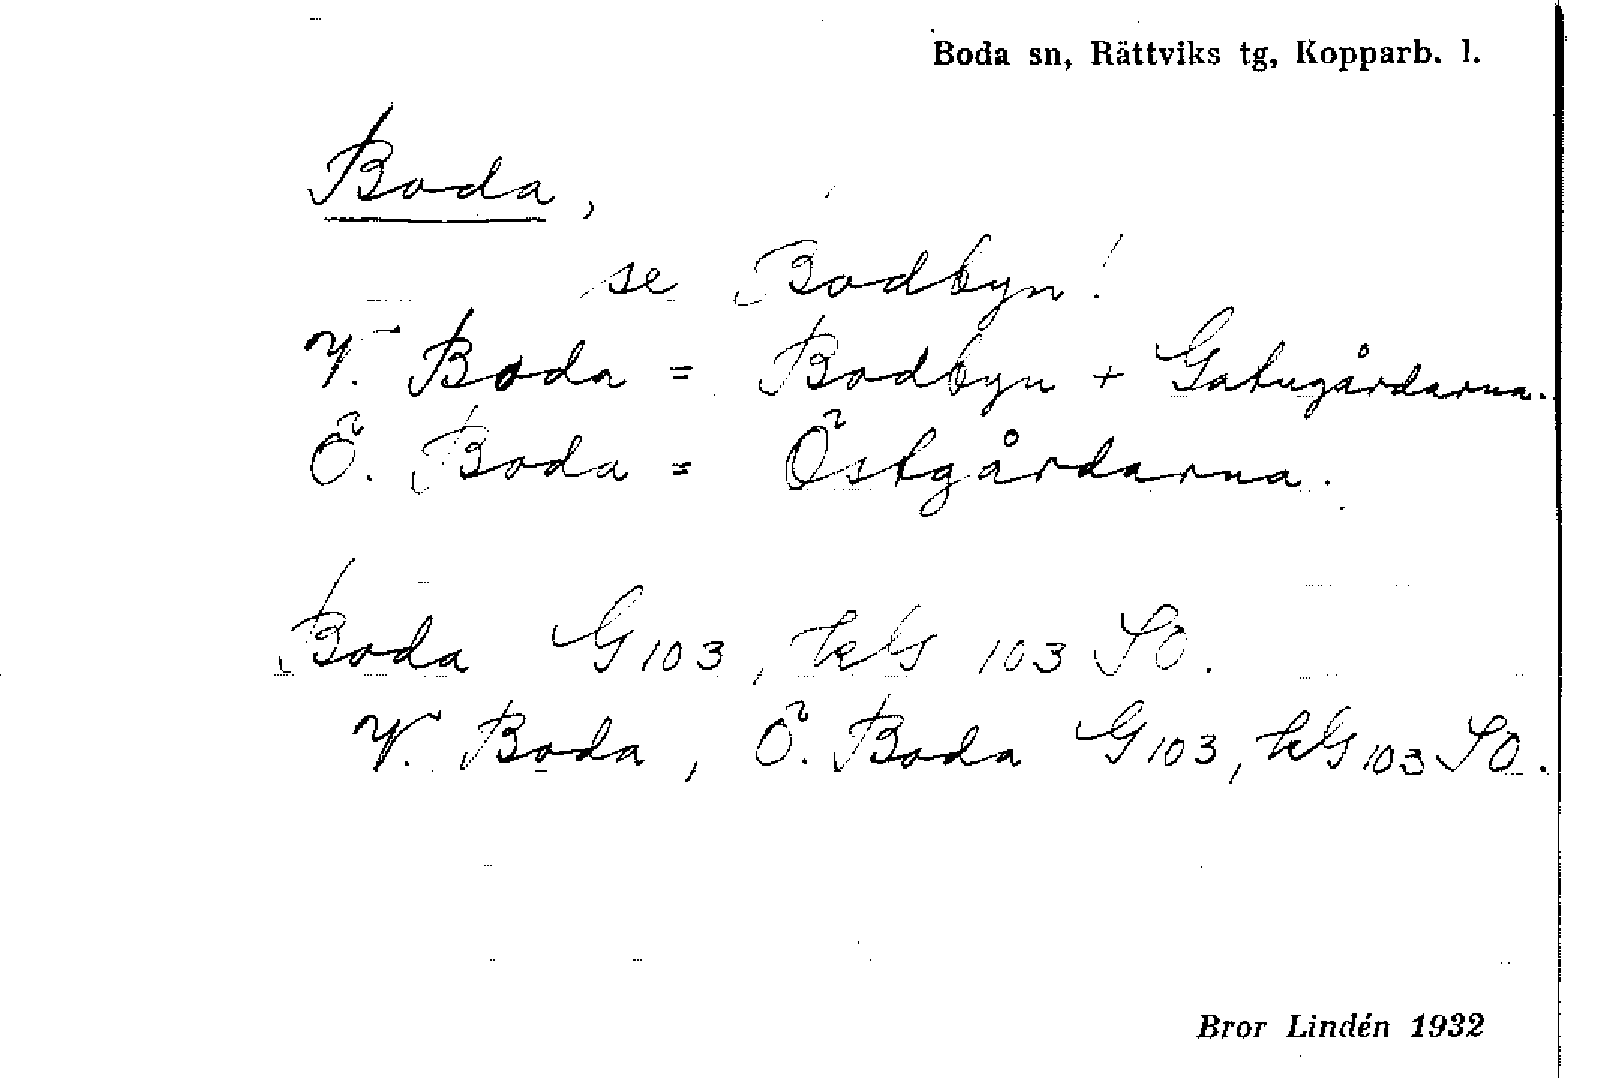 Boda sn, Rättviks tg, Kopparb. l.
Boda,
se Bodbyn!
V. Boda = Bodbyn + Gatugårdarna.
Ö. Boda = Östgårdarna.
Boda G 103, kG 103 SO.
V. Boda, Ö. Boda G 103, kG 103 SO.
Bror Lindén 1932